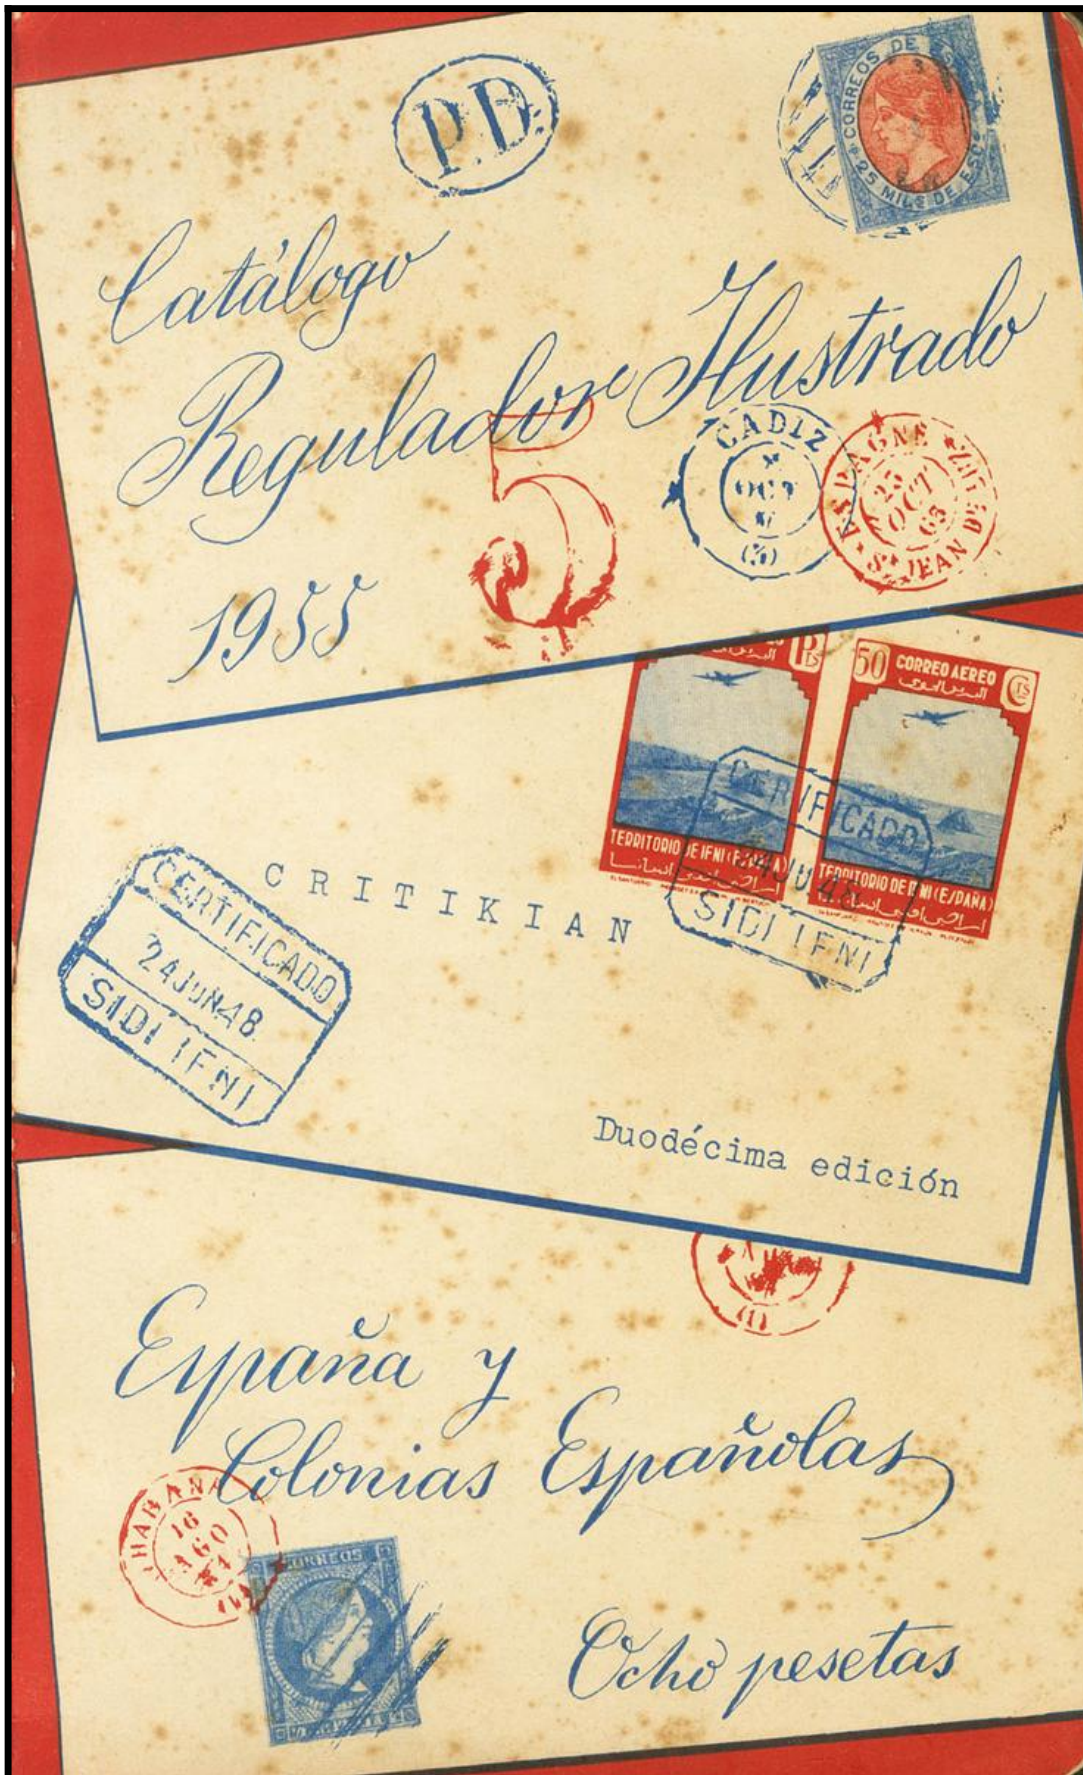 P.D.
CORREOS DE ES
25 MILS DE ESCO
Catálogo
Regulador Ilustrado
5
CADIZ
OCT
ESPAGNE
25
OCT
65
ST JEAN DE
1955
PTS
البريد الجوي
50 CORREO AEREO CTS
البريد الجوي
TERRITORIO DE IFNI (ESPAÑA)
TERRITORIO DE IFNI (ESPAÑA)
CERTIFICADO
24 JU 48
SIDI IFNI
CRITIKIAN
CERTIFICADO
24 JUN 48
SIDI IFNI
Duodécima edición
(1)
España y
Colonias Españolas
HABANA
16
AGO
(1)
CORREOS
Ocho pesetas